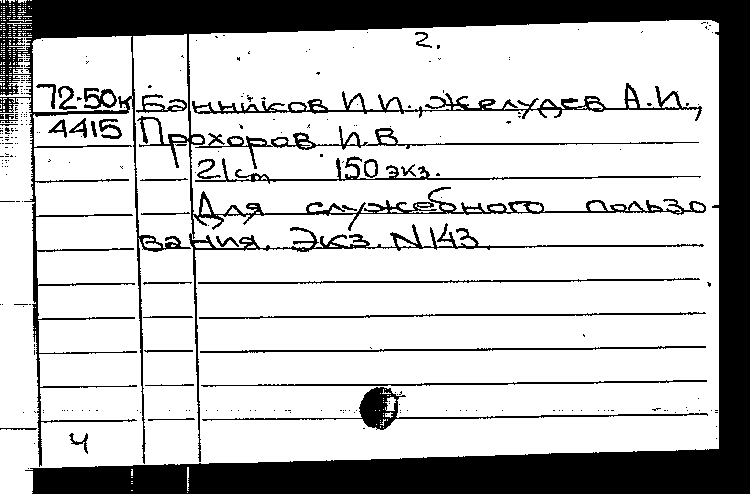 2.
72-50к Банников И.И., Желудев А.И.,
4415 Прохоров И.В.
21 ст 150 экз.
Для служебного пользо-
вания. Экз. N 143.
Ч